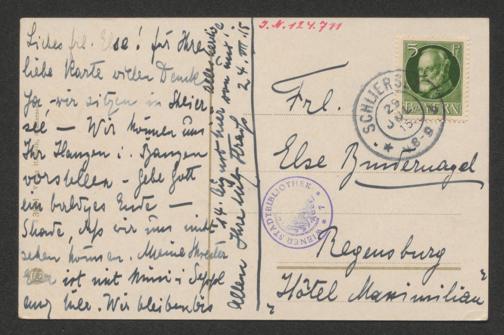 Liebes Frl. Else! für Ihre
liebe Karte vielen Dank
Ja, wir sitzen in Schlier
see — Wir können uns
Ihr Hangen u. Bangen
vorstellen — Gebe Gott
ein baldiges Ende —
Schade, daß wir uns nicht
sehen können. Meine
ist mit Mimi u. Seppl
auch hier. Wir bleiben bis
14. August hier von mir!
allen Ihre
24. VII. 15
J.N. 124.711
5 PF
BAYERN
SCHLIERSEE
Frl.
Else Binternagel
WIENER STADTBIBLIOTHEK
Regensburg
"Hôtel Maximilian"